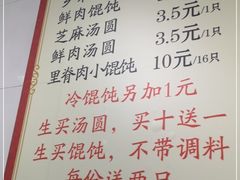 鲜肉馄饨 3.5元/1只
芝麻汤圆
鲜肉汤圆 3.5元/1只
里脊肉小馄饨 10元/16只
冷馄饨另加1元
生买汤圆，买十送一
生买馄饨，不带调料
每份送两只